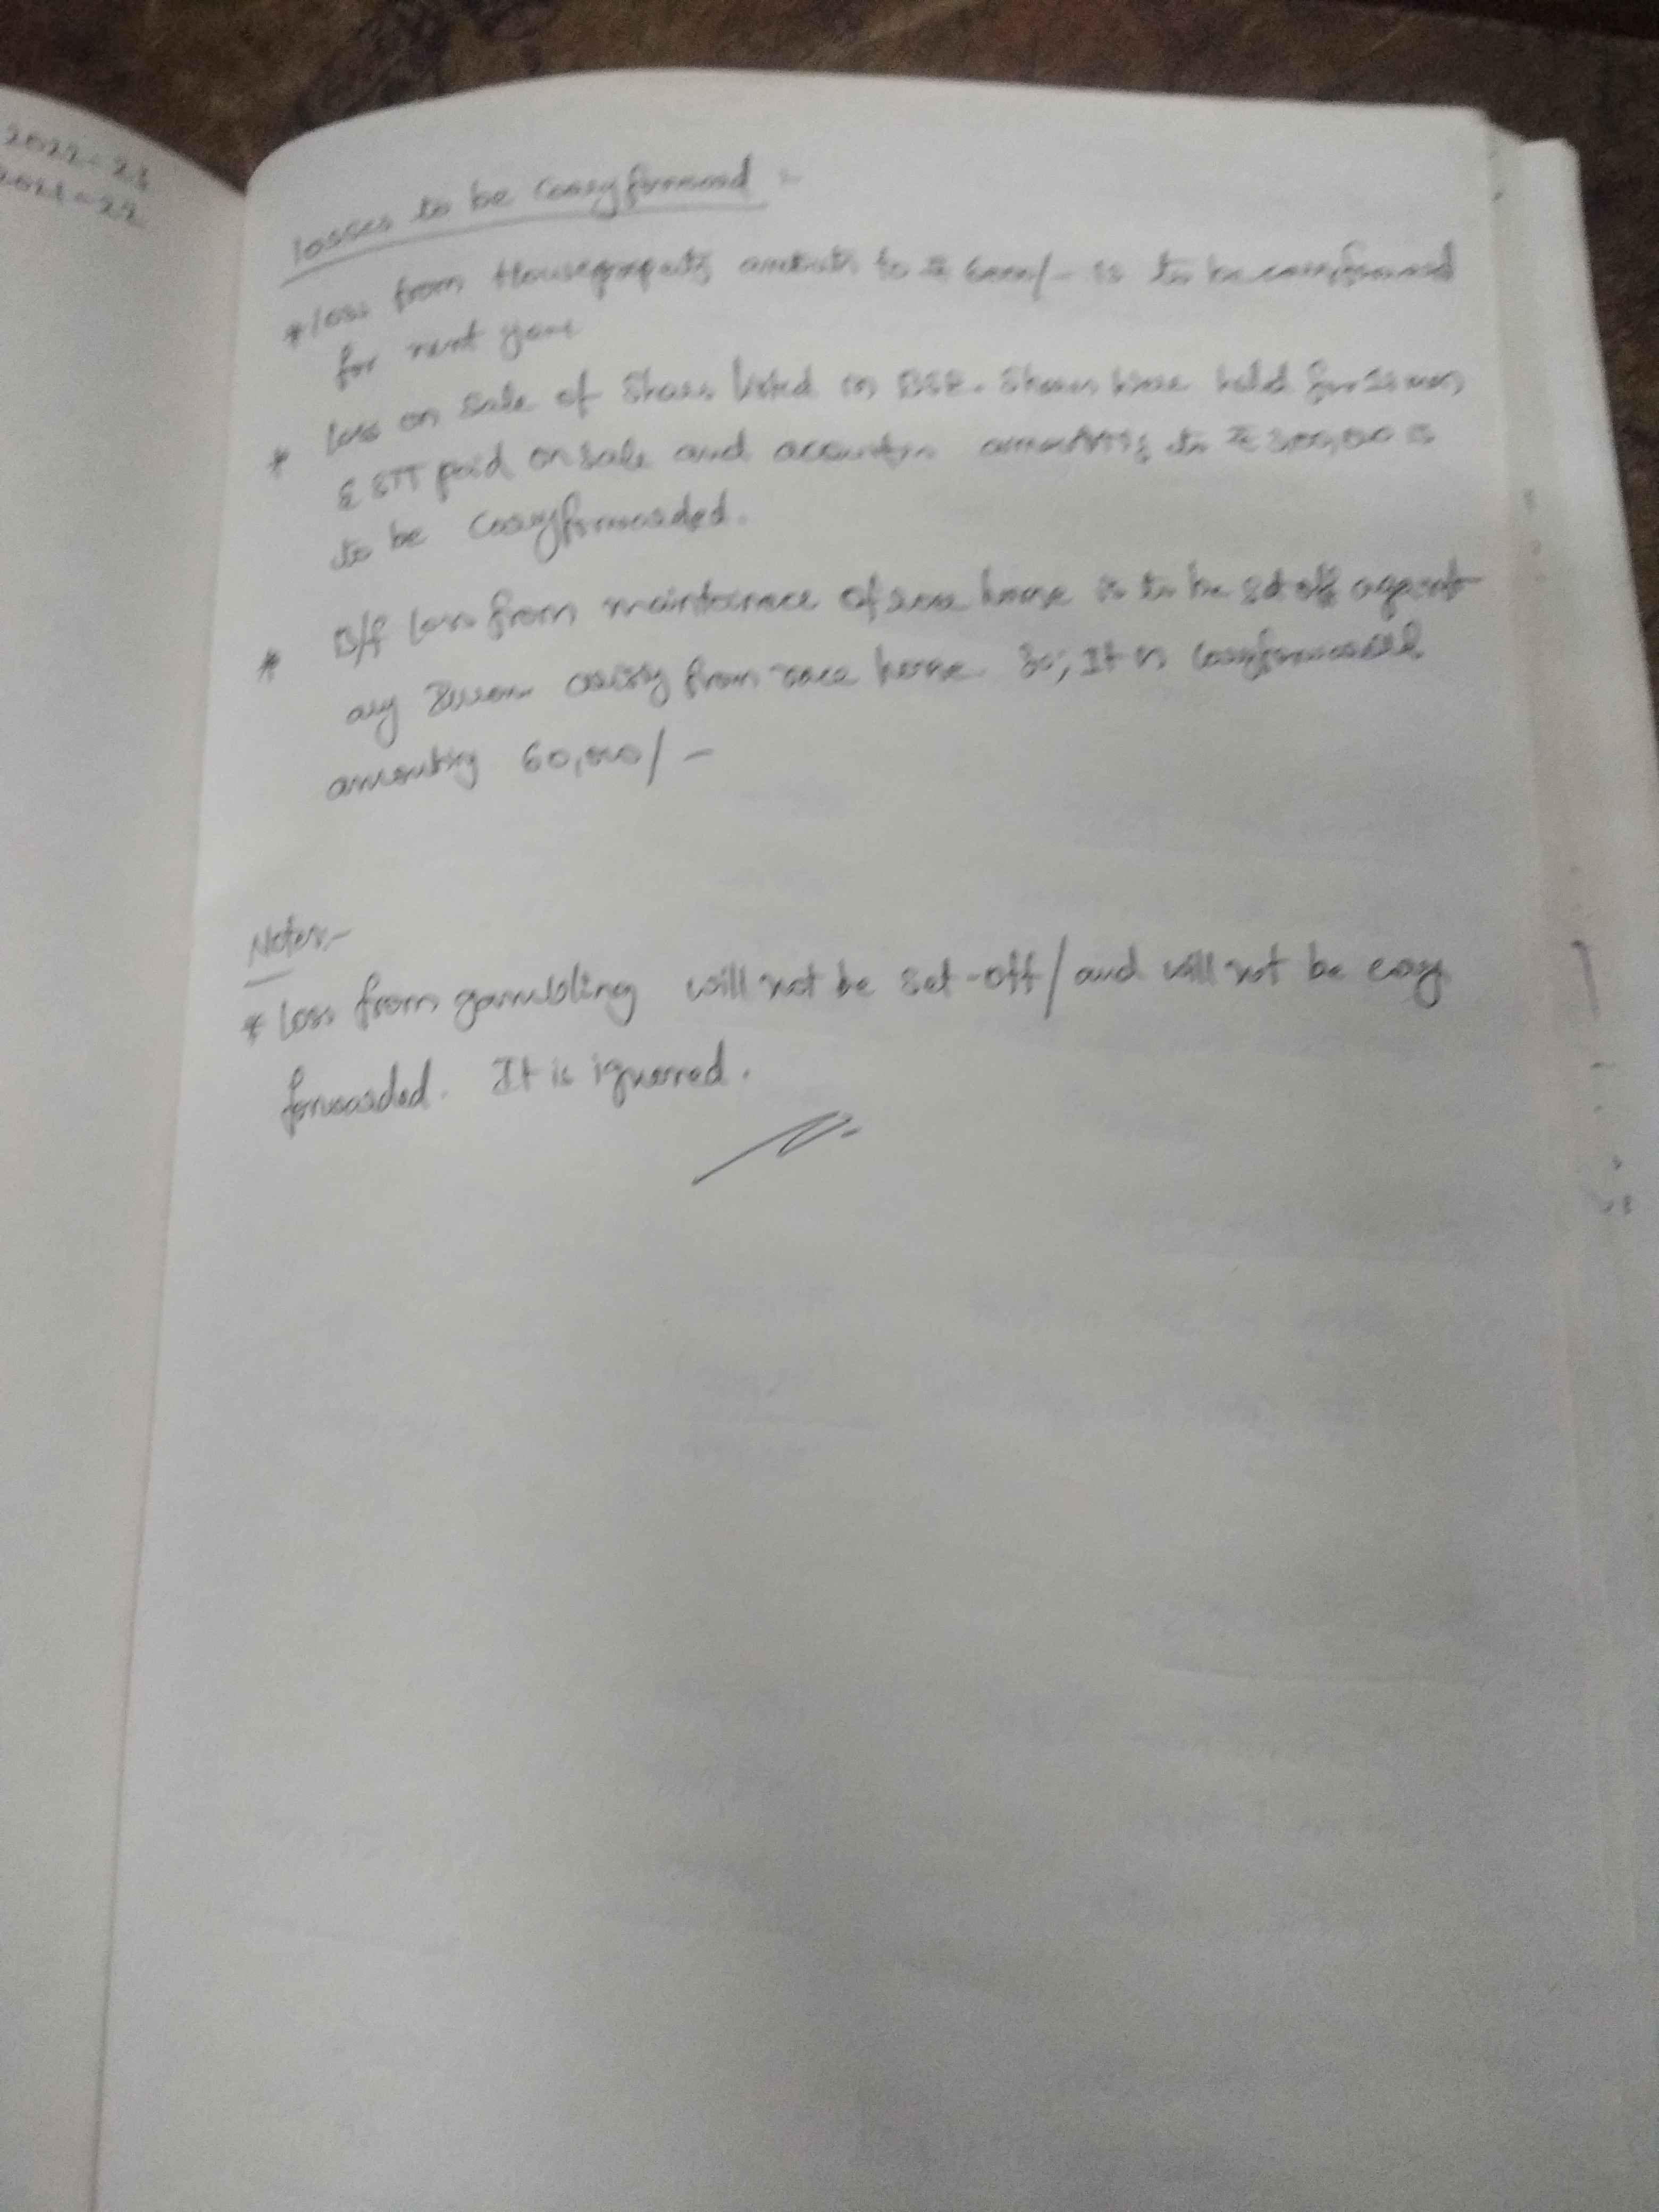 2022-23
2021-22
losses to be Carryforward :-
* loss from Houseproperty amounts to ₹ /- is to be carryforward
for next year
* loss on sale of Shares listed in BSE. Shares were held for
& STT paid on sale and amounting to ₹ is
to be Carryforwarded.
* B/f loss from maintenance of race horse is to be set off against
any Income arising from race horse. So, It is carryforwarded
amounting 60,000/-
Notes:-
* Loss from gambling will not be set-off/and will not be carry
forwarded. It is ignored.